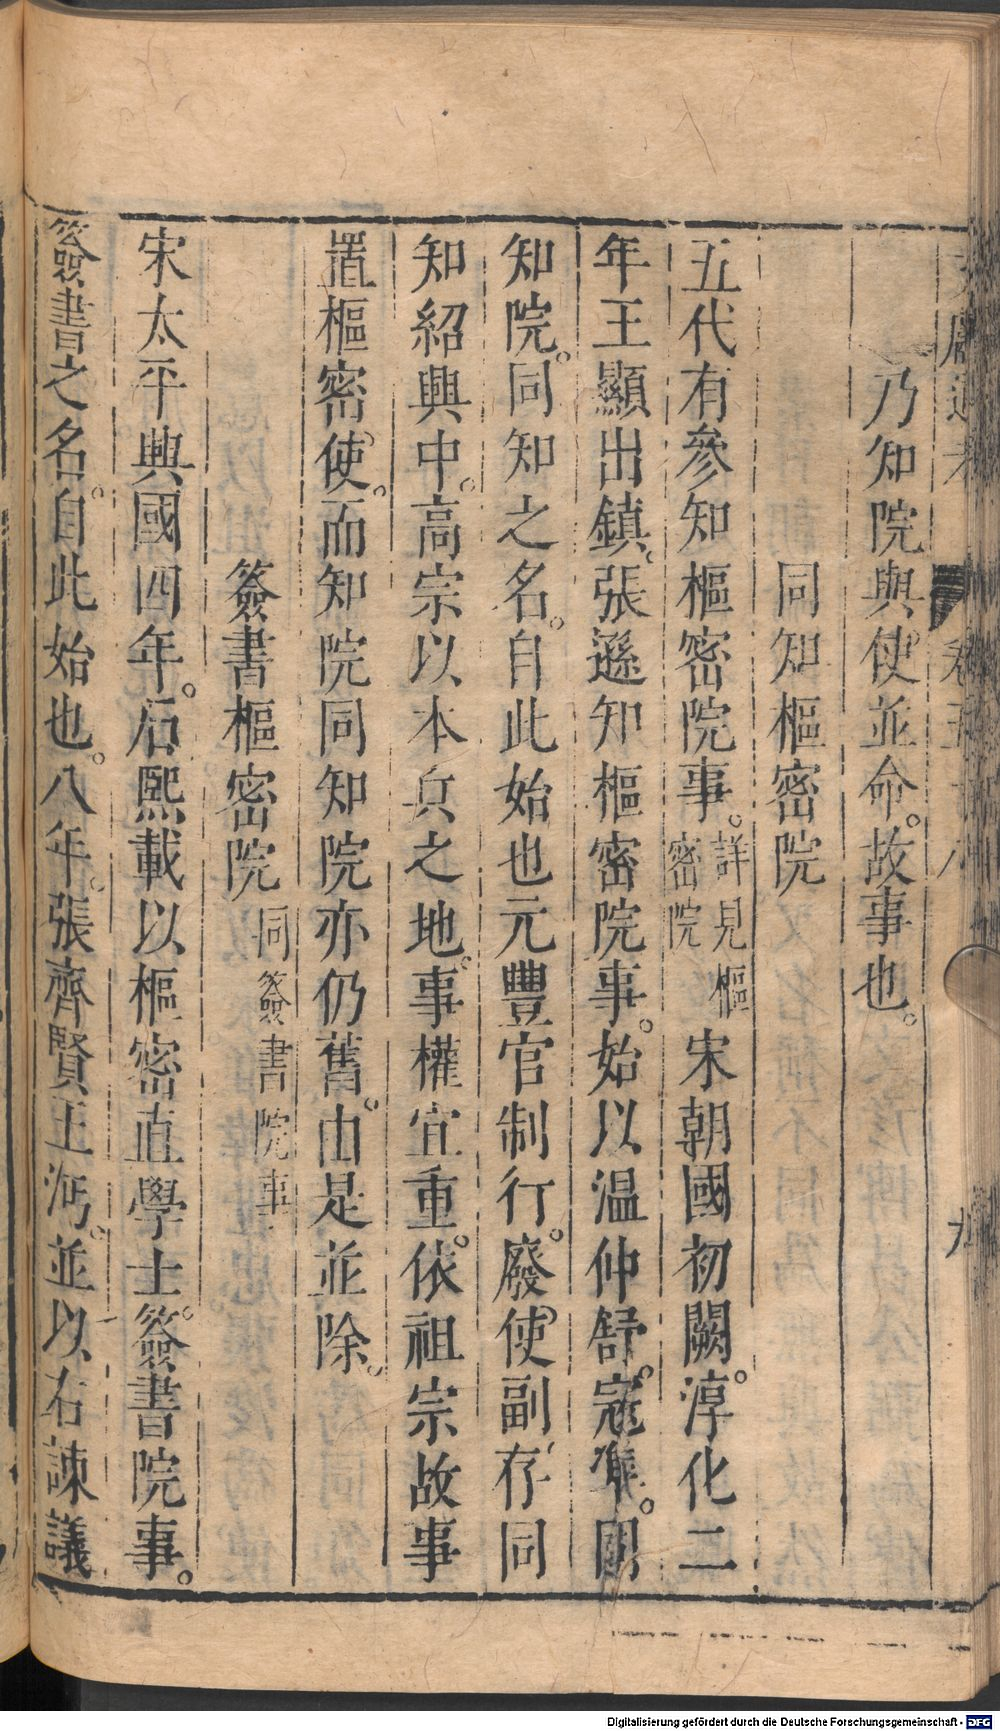 乃知院與使並命。故事也。
同知樞密院
五代有參知樞密院事。詳見樞密院宋朝國初闕。淳化二
年王顯出鎮。張遜知樞密院事。始以温仲舒。寇準。同
知院。同知之名。自此始也元豐官制行。廢使副存同
知紹興中。高宗以本兵之地。事權宜重。依祖宗故事
置樞密使。而知院同知院亦仍舊。由是並除。
簽書樞密院同簽書院事
宋太平興國四年。石熙載以樞密直學士。簽書院事。
簽書之名。自此始也。八年。張齊賢王沔。並以右諫議
九
Digitalisierung gefördert durch die Deutsche Forschungsgemeinschaft - DFG